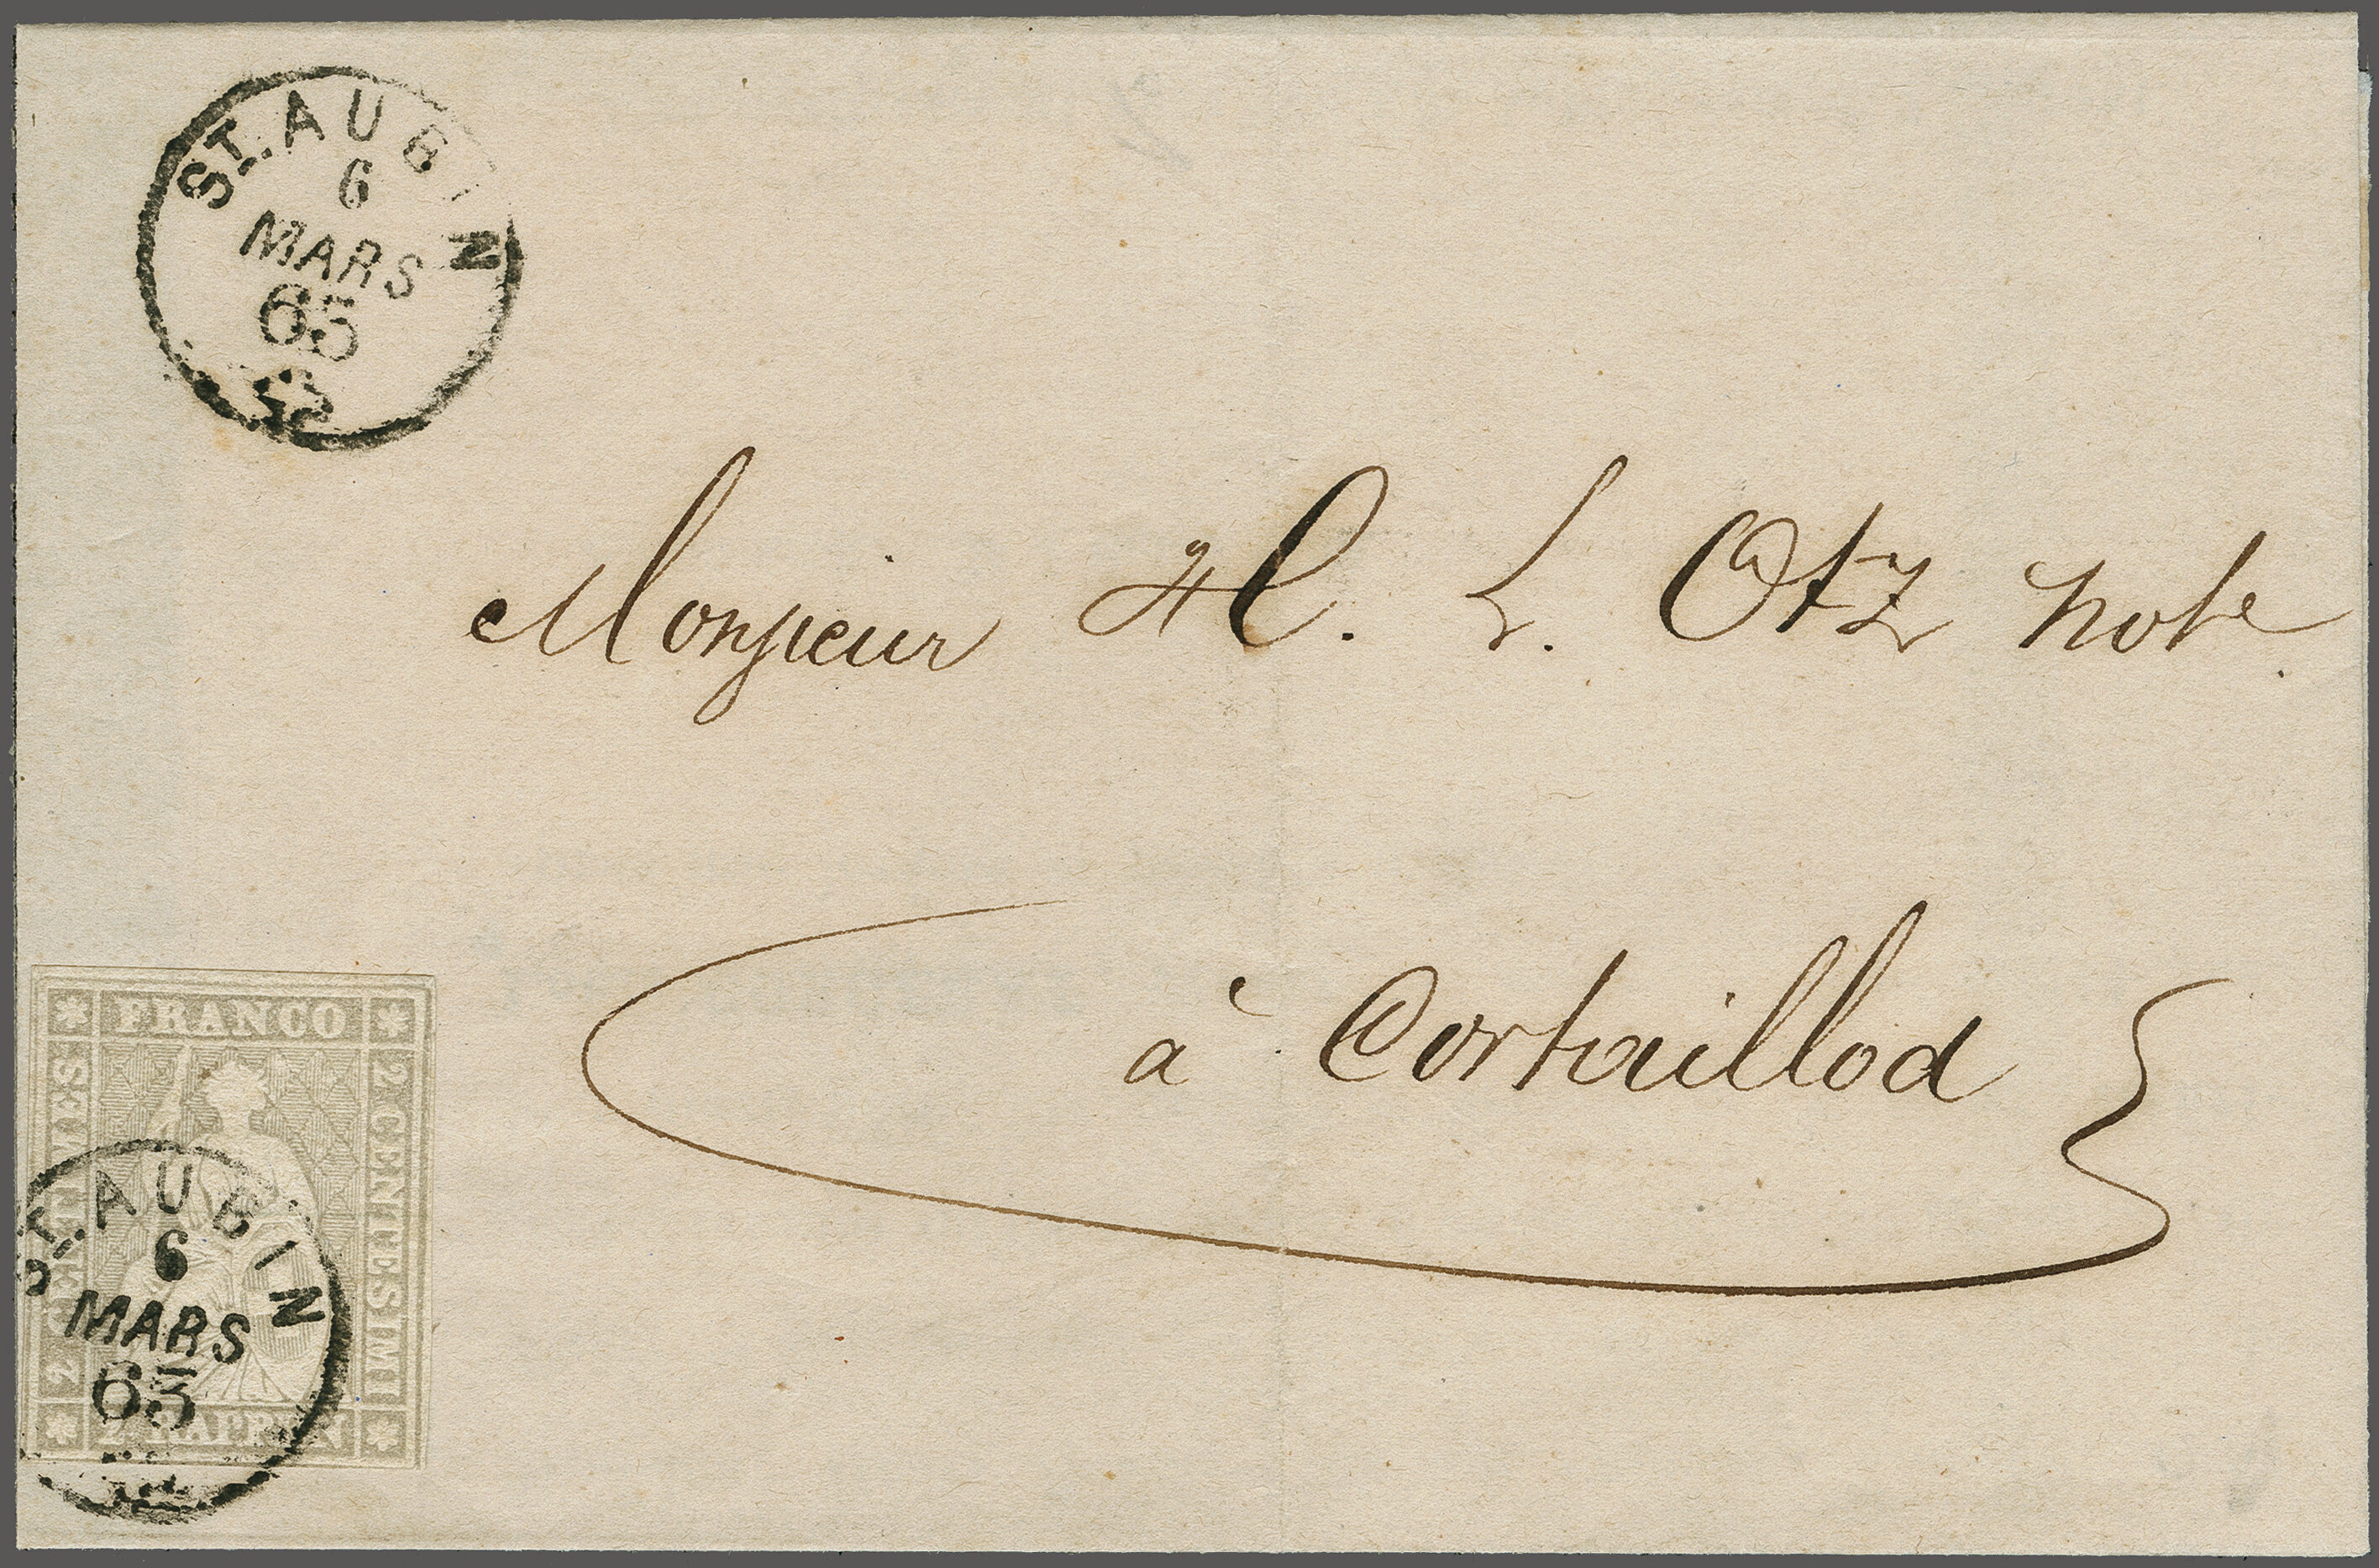 ST. AUBIN
6
MARS
63
Monsieur H. L. Otz Note
à Cortaillod
FRANCO
2 CENTIMES
2 CENTESIMI
2 RAPPEN
ST. AUBIN
6
MARS
63